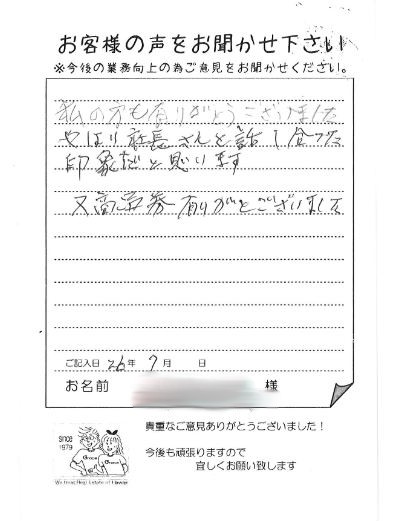 お客様の声をお聞かせ下さい
※今後の業務向上の為ご意見をお聞かせください。
私の方も有りがとうございました
やはり社長さんと話し合った
印象だと思います
又商品券有りがとございました
ご記入日 26年 7月 日
お名前 様
貴重なご意見ありがとうございました！
今後も頑張りますので
宜しくお願い致します
since
1979